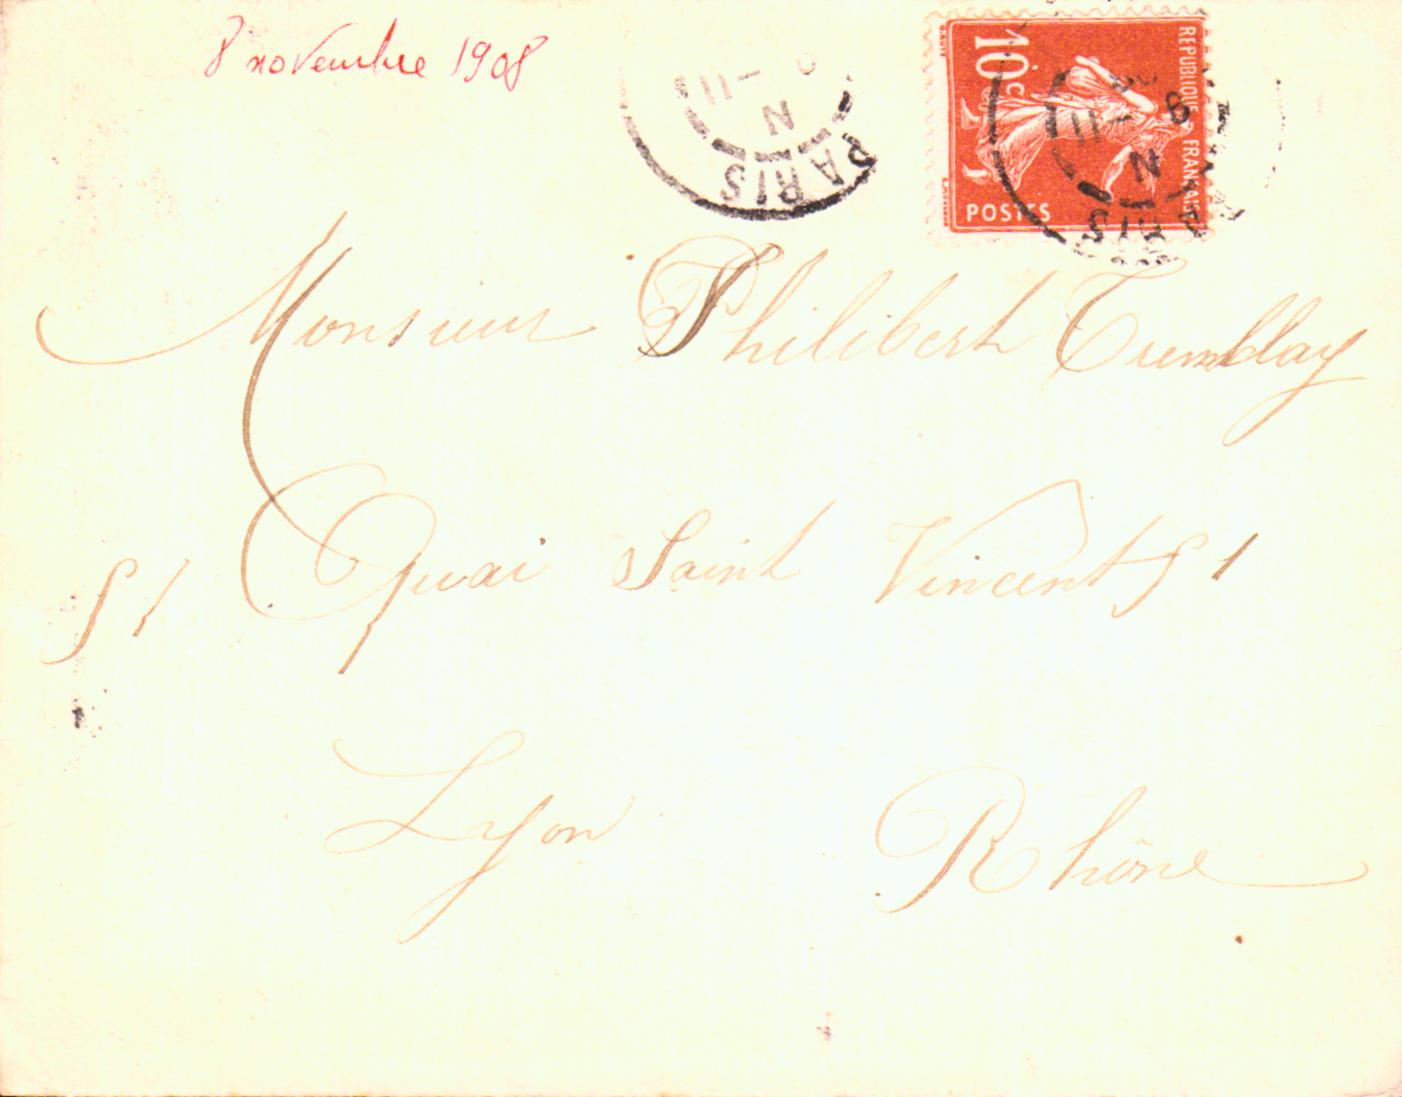 8 novembre 1908
PARIS
N
11
REPUBLIQUE FRANÇAISE
10c
POSTES
PARIS
N
11
Monsieur Philibert Tremblay
51 Quai Saint Vincent 51
Lyon Rhône